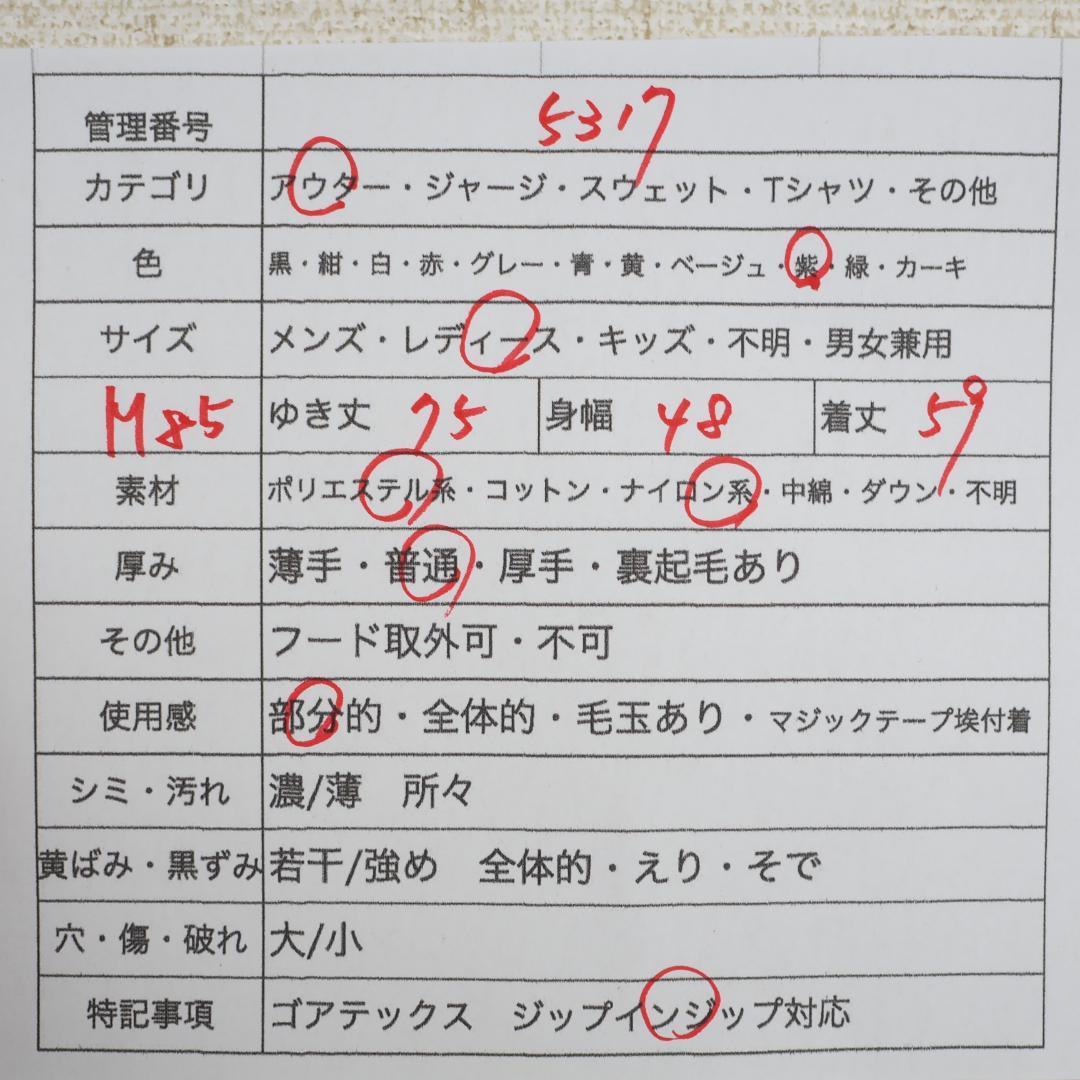 管理番号 5317
カテゴリ アウター・ジャージ・スウェット・Tシャツ・その他
色 黒・紺・白・赤・グレー・青・黄・ベージュ・紫・緑・カーキ
サイズ メンズ・レディース・キッズ・不明・男女兼用
M85 ゆき丈 75 身幅 48 着丈 59
素材 ポリエステル系・コットン・ナイロン系・中綿・ダウン・不明
厚み 薄手・普通・厚手・裏起毛あり
その他 フード取外可・不可
使用感 部分的・全体的・毛玉あり・マジックテープ埃付着
シミ・汚れ 濃/薄 所々
黄ばみ・黒ずみ 若干/強め 全体的・えり・そで
穴・傷・破れ 大/小
特記事項 ゴアテックス ジップインジップ対応